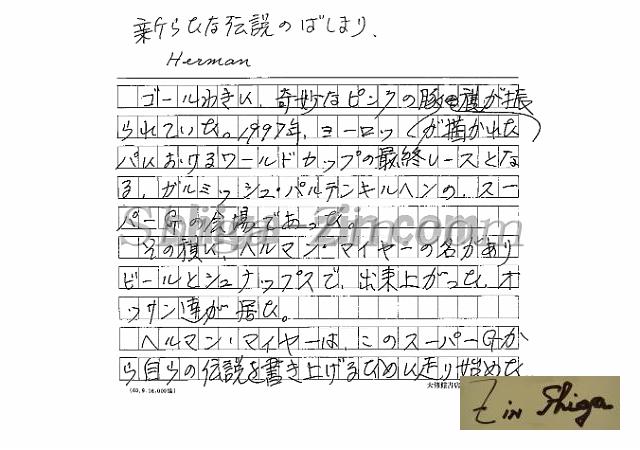 新らたな伝説のはじまり、
Herman
ゴールわきに、奇妙なピンクの豚の旗が振
られていた。1997年、ヨーロッ が描かれた
パにおけるワールドカップの最終レースとな
る、ガルミッシュ・パルテンキルヘンの、スー
パーGの会場であった。
その旗に、ヘルマン・マイヤーの名があり
ビールとシュナップスで、出来上がった、オ
ッサン達が居た。
ヘルマン・マイヤーは、このスーパーGか
ら自らの伝説を書き上げるために走り始めた
大修館書店
Shiga Zin.com
Z in Shiga